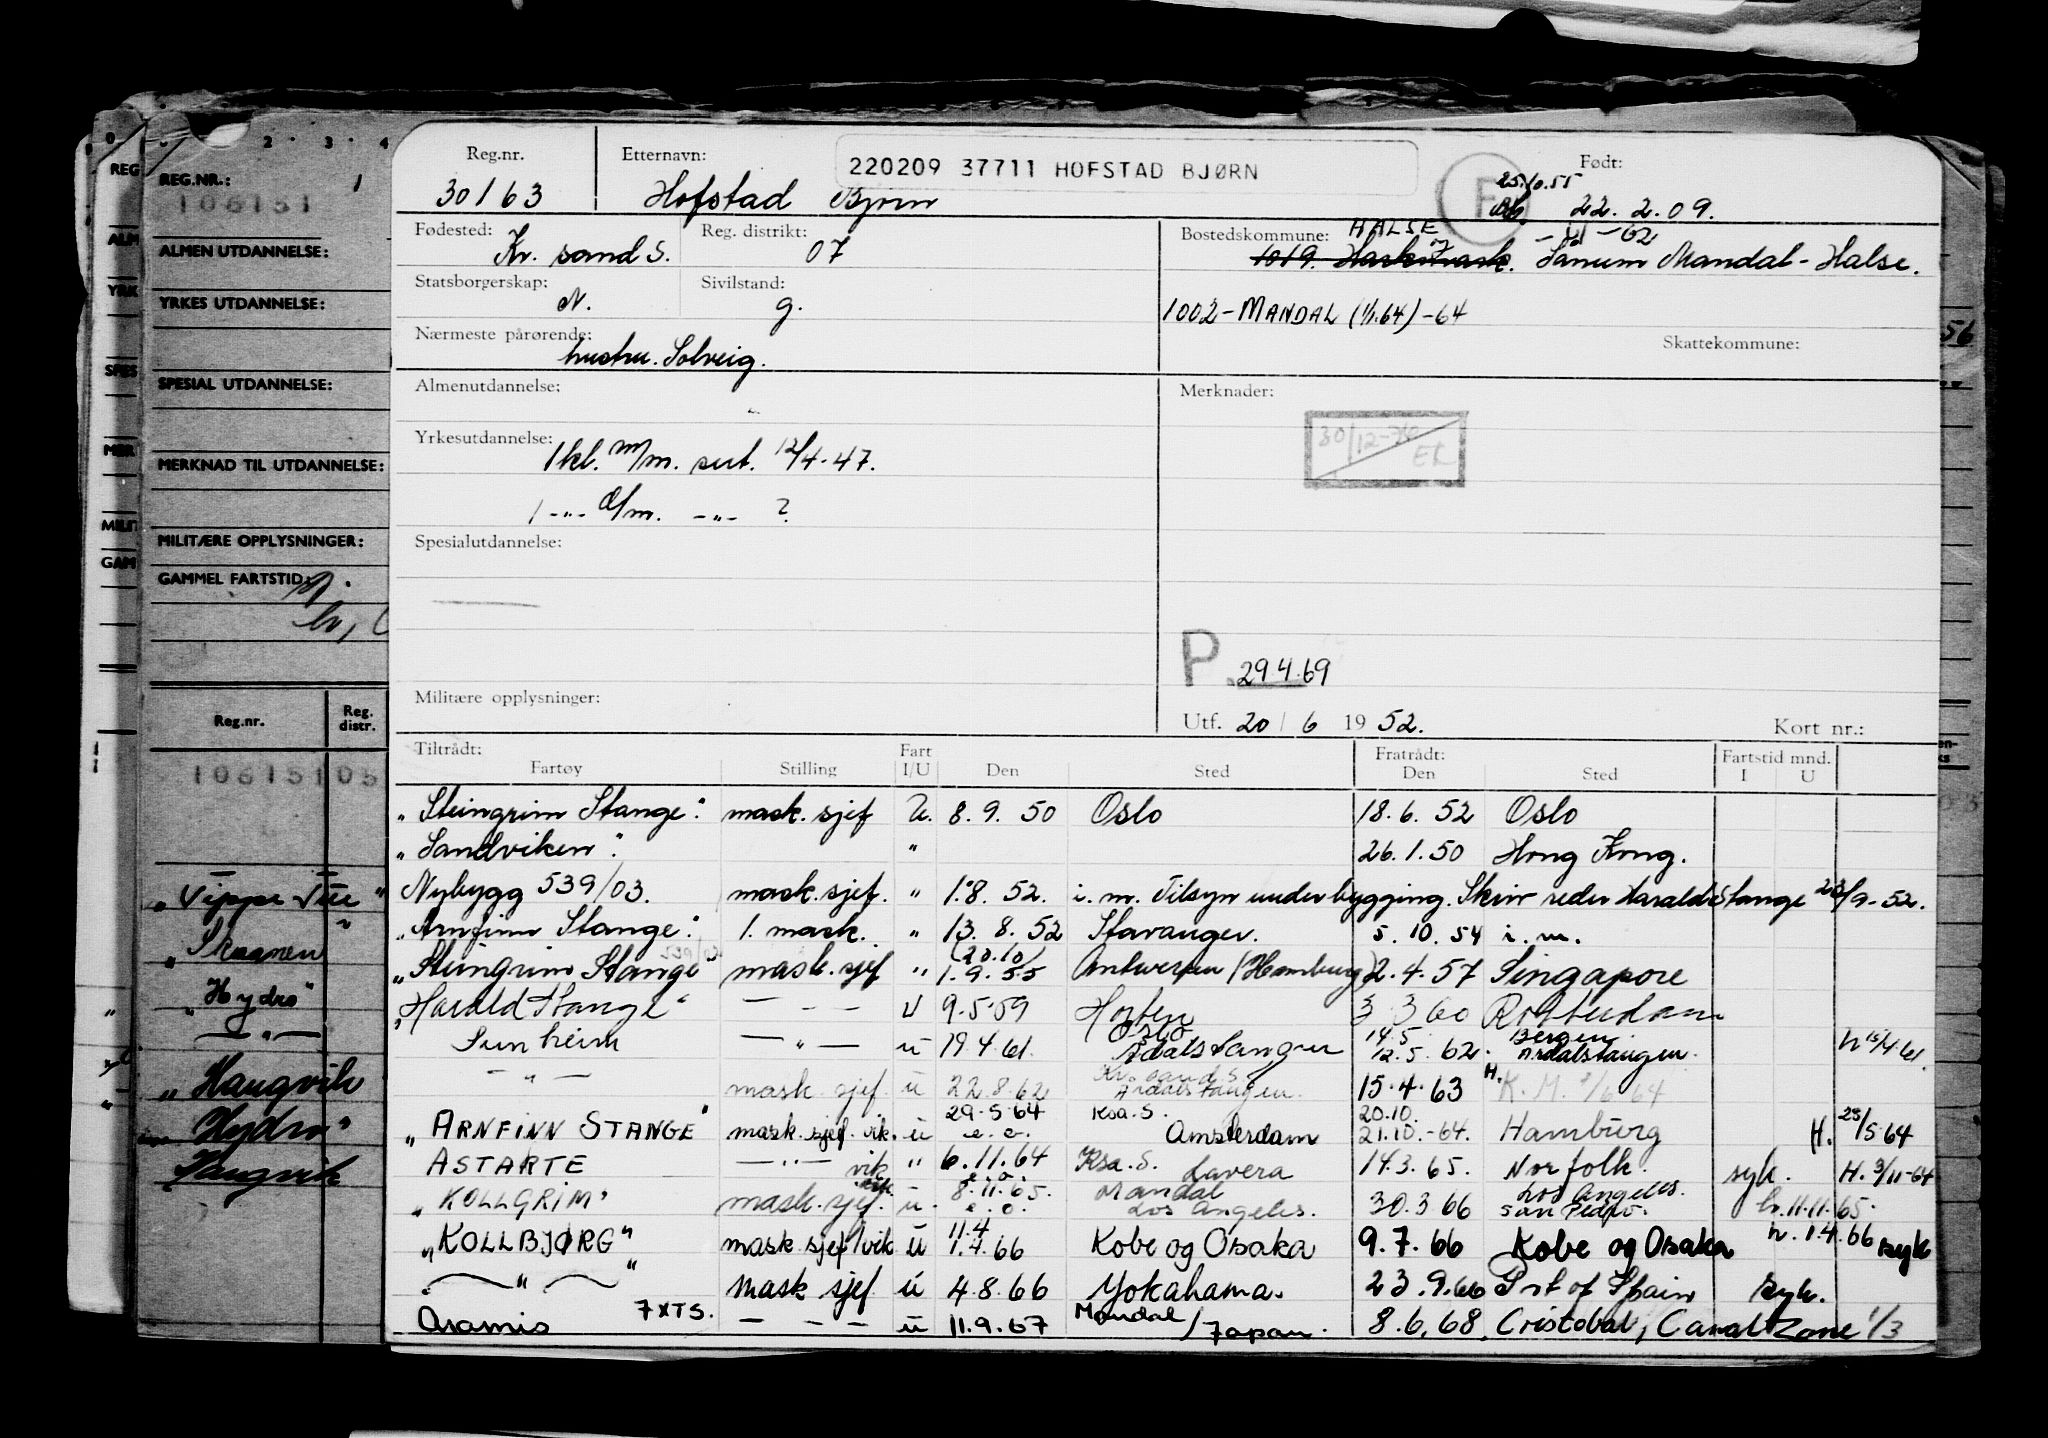 Reg.nr. Etternavn: 220209 37711 HOFSTAD BJØRN Født:
30163 Hofstad Bjørn 25.10.55 22.2.09.
Fødested: Kr. sand S. Reg. distrikt: 07 Bostedskommune: HALSE
1019. Harkmark. Sånum Mandal - Halse.
Statsborgerskap: N. Sivilstand: g.
1002-MANDAL (1/1.64)-64
Nærmeste pårørende: hustru. Solveig.
Skattekommune:
Almenutdannelse:
Merknader:
30/12-70 EL
Yrkesutdannelse: 1kl. m/m. sert. 12/4-47.
1 -"- d/m. -"- ?
Spesialutdannelse:
P 29.4.69
Militære opplysninger:
Utf. 20/6 1952. Kort nr.:
Tiltrådt: Fartøy Stilling Fart I/U Den Sted Fratrådt: Den Sted Fartstid mnd. I U
"Steingrim Stange". mask. sjef U. 8.9.50 Oslo 18.6.52 Oslo
"Sandviken". " 26.1.50 Hong Kong.
Nybygg 539/03. mask. sjef. " 1.8.52. i.m. Tilsyn under bygging. Skriv reder Harald Stange 23/9-52.
"Arnfinn Stange". 1. mask. " 13.8.52 Stavanger. 5.10.54 i.m.
539/03
"Steingrim Stange" mask. sjef " (20.10) 1.9.55 Antwerpen (Hamburg) 2.4.57 Singapore
"Harald Stange" - - - U 9.5.59 Horten 3 3 60 Rotterdam
Sunheim -"- u 19.4.61. Oslo Årdalstangen 14.5 12.5.62. Bergen Årdalstangen. h 15/4 61
-"- mask. sjef. u 22.8.62 Kr. sand S. Årdalstangen. 15.4.63 H. K.M. 64
"ARNFINN STANGE" mask. sjef. vik. u 29.5.64 e.o. Ksa. S. Amsterdam 20.10. 21.10.-64. Hamburg H. 25/5 64
ASTARTE -"- vik " 6.11.64 e.o. Ksa. S. Lavera 14.3.65. Norfolk. syk. H. 3/11-64
"KOLLGRIM" mask. sjef. vik. u. 8.11.65. e.o. Mandal Los Angeles. 30.3 66 Los Angeles. San Pedro. h. 11.11.65.
"KOLLBJØRG" mask sjef/vik u 11.4 1.4.66 Kobe og Osaka 9.7.66 Kobe og Osaka h. 1.4.66 syk
-"- mask sjef u 4.8.66 Yokahama. 23.9.66 Port of Spain syk.
Aramis 7XTS. - - - u 11.9.67 Mandal/Japan. 8.6.68. Cristobal, Canal Zone 1/3
0 2 · 3 · 4
REG.NR.: 1
106151
ALMEN UTDANNELSE:
YRKES UTDANNELSE:
SPESIAL UTDANNELSE:
MERKNAD TIL UTDANNELSE:
MILITÆRE OPPLYSNINGER:
GAMMEL FARTSTID:
Reg.nr. Reg. distr.
106151 05
"Hydro"
-"-
"Haugvik
Hydro"
Haugvik
REG
ALM
YRK
SPES
MER
MILIT
GAM
56